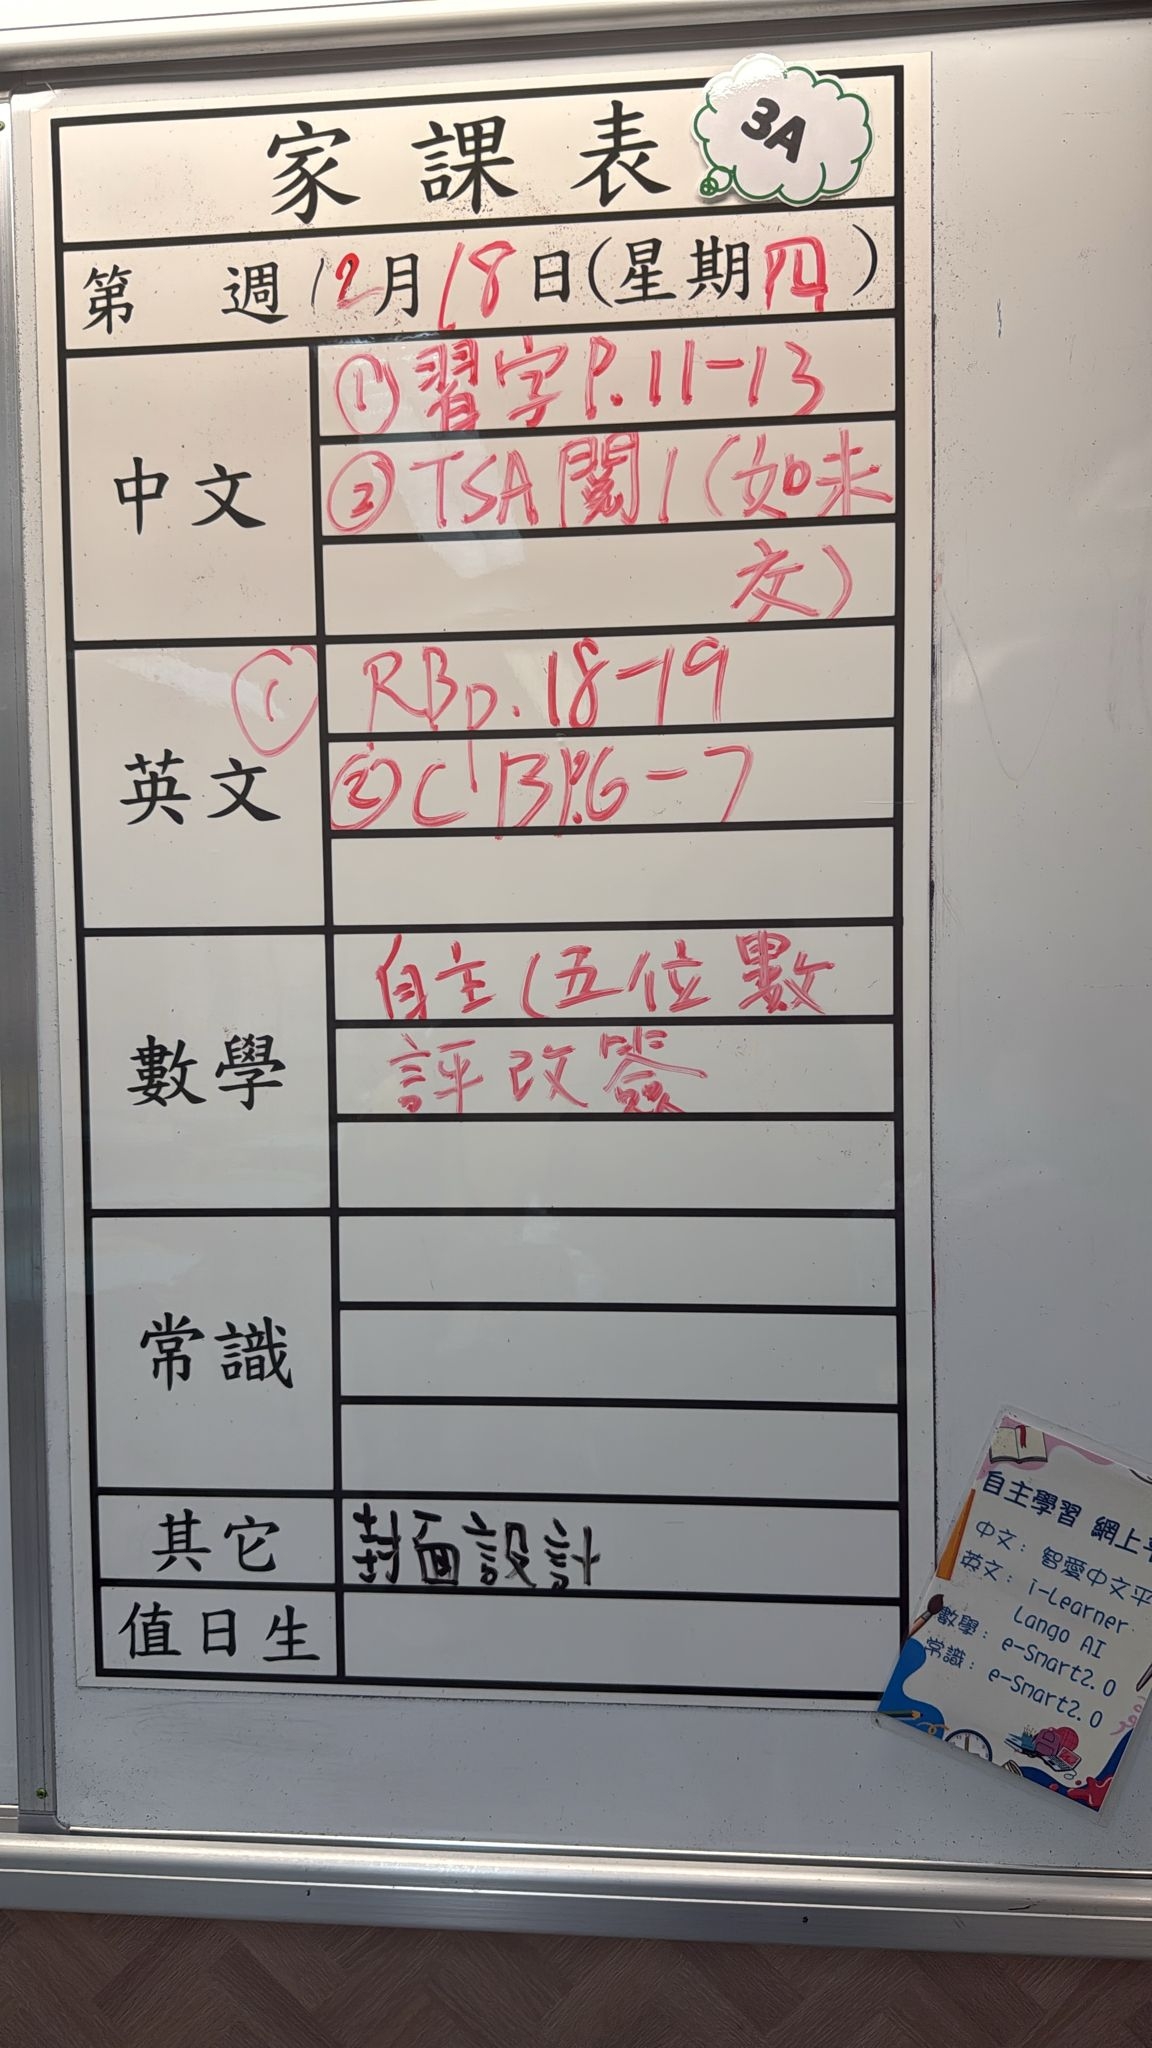 家課表
3A
第 週 12月18日(星期四)
中文
①習字P.11-13
②TSA閱1(如未
交)
英文
① RBp.18-19
②CB P.6-7
數學
自主(五位數
評改簽
常識
其它
封面設計
值日生
自主學習 網上
中文：智愛中文平
英文：i-Learner
Lango AI
數學：e-Smart2.0
常識：e-Smart2.0